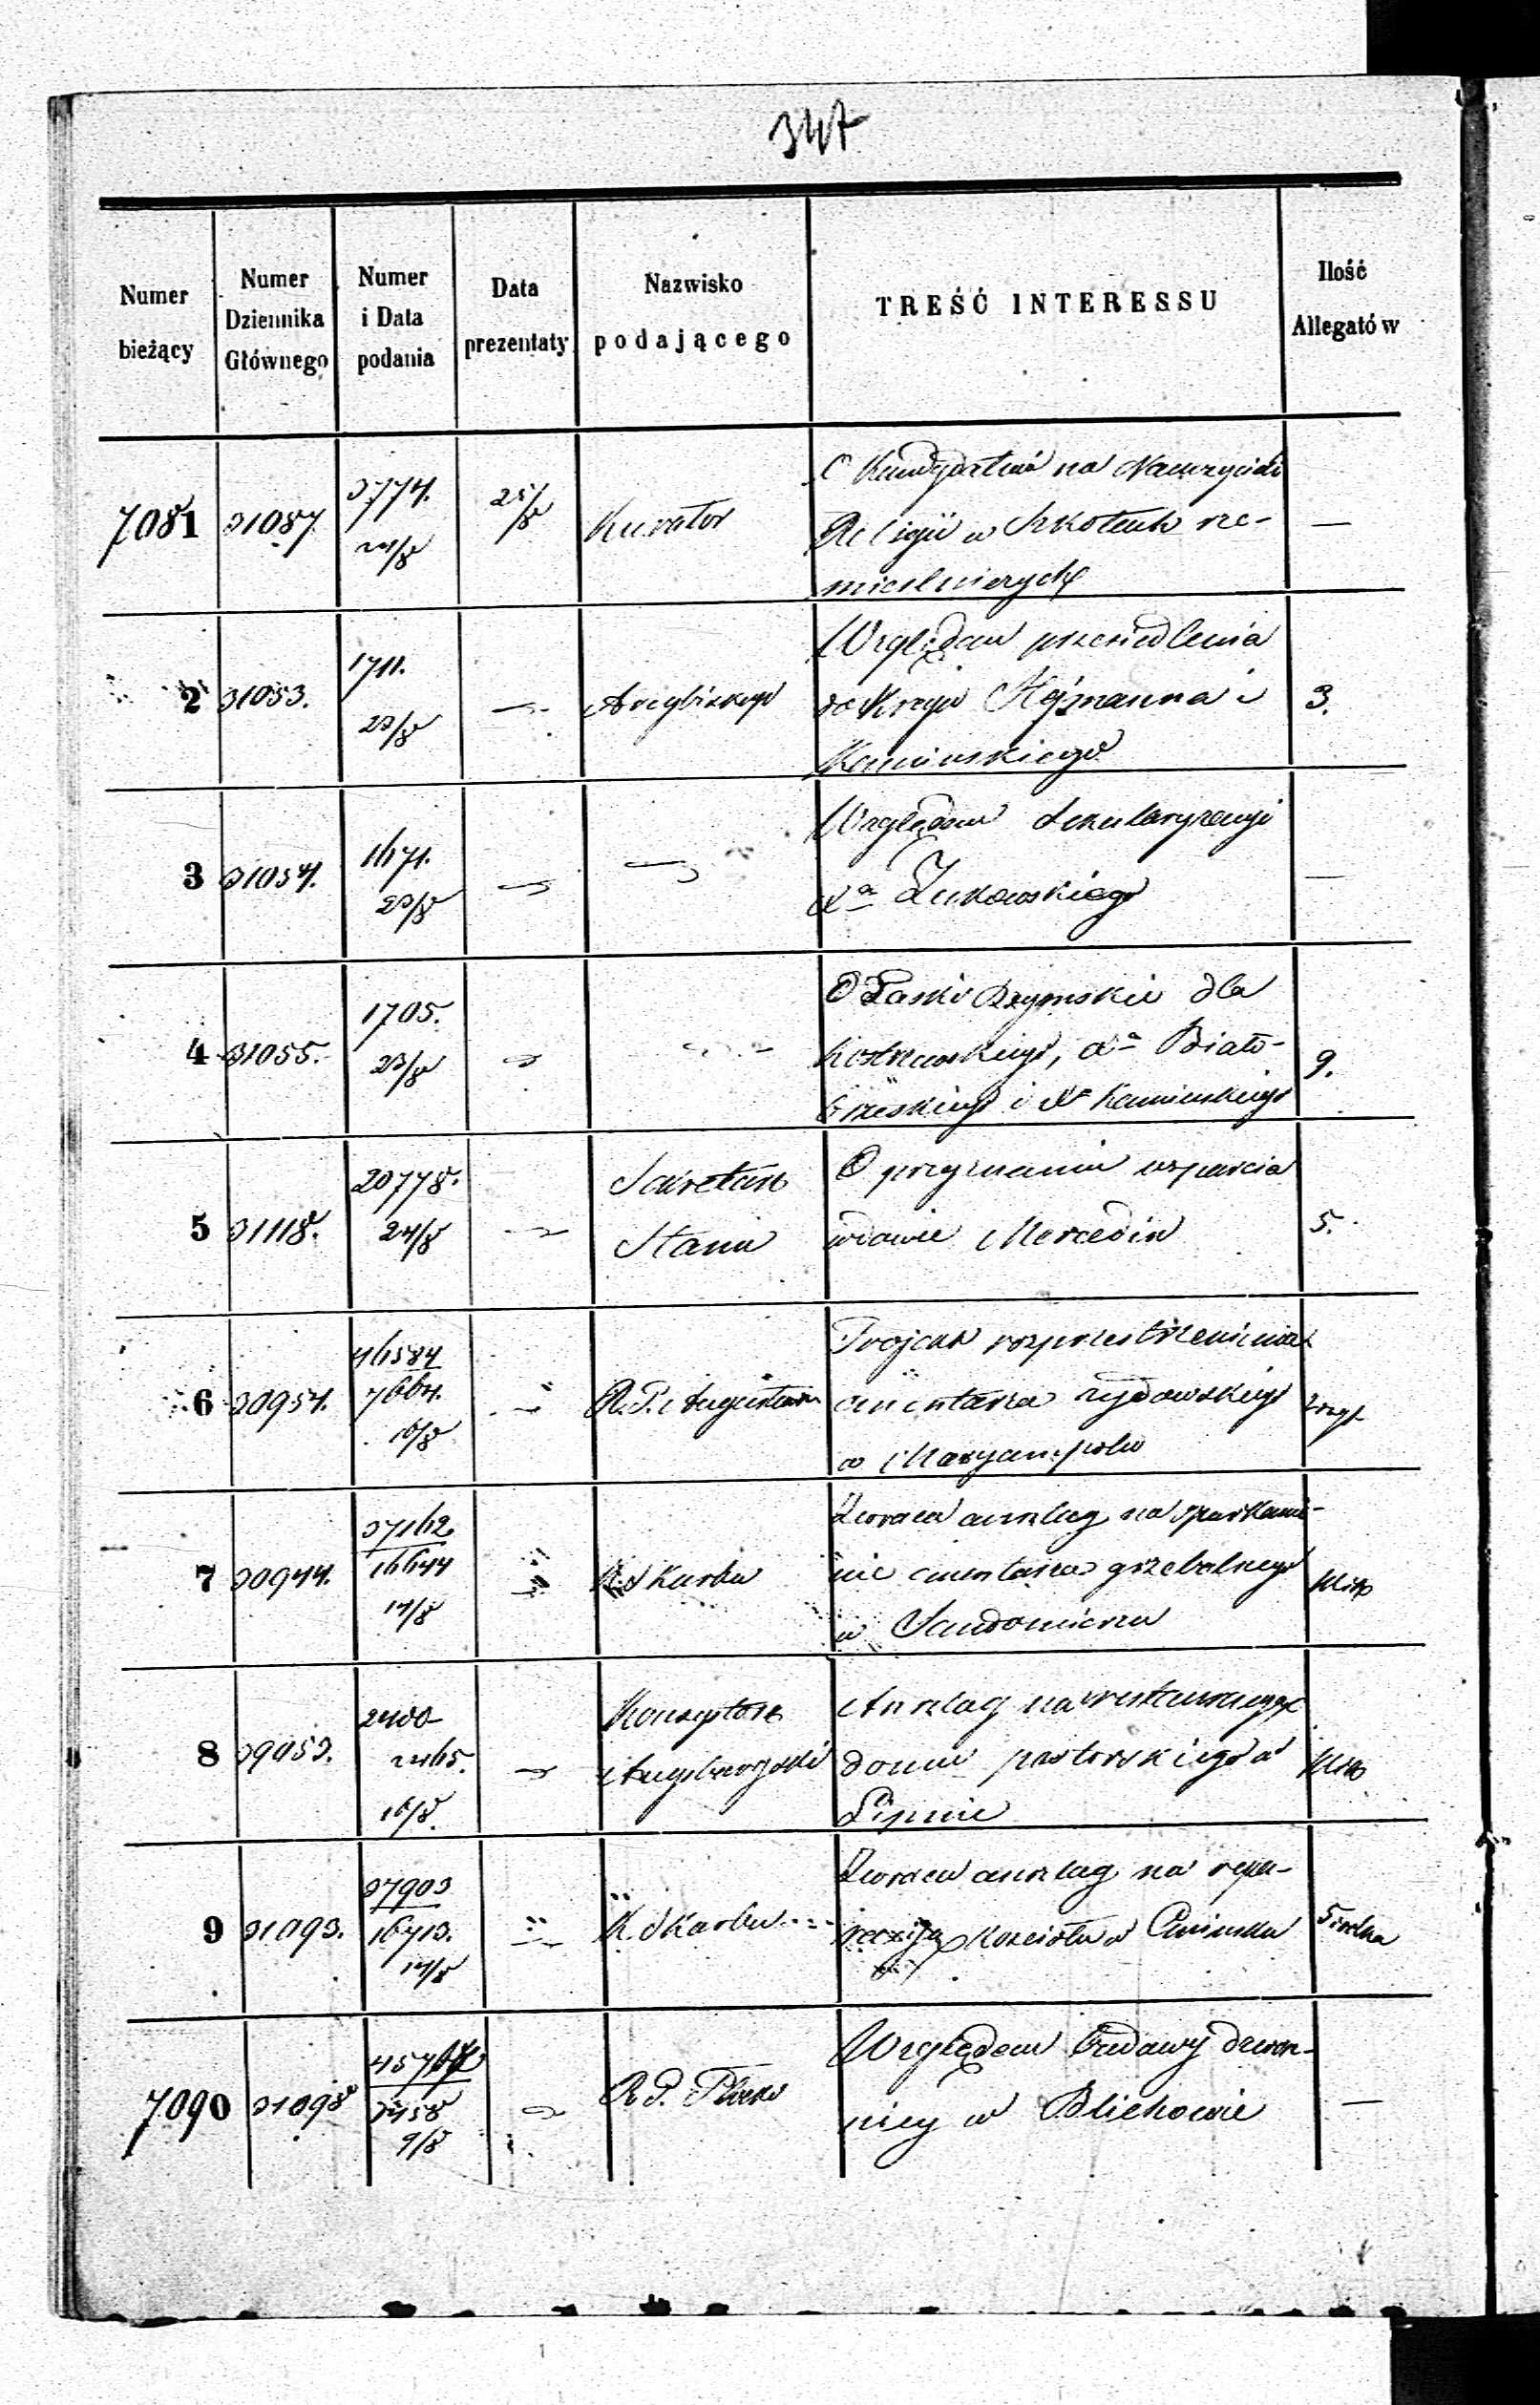 347
Numer bieżący
Numer Dziennika Głównego
Numer i Data podania
Data prezentaty
Nazwisko podającego
TREŚĆ INTERESSU
Ilość Allegatów
7081 31087 3774. 24/8 25/8 Kurator
O Kandydatów na Nauczycieli
Religii w Szkołach rze-
mieślniczych —
2 31053. 1711. 23/8 Arcybiskup
Względem przesiedlenia
do Kraju Hejmanna i
Kamińskiego 3.
3 31054. 1671. 23/8
Względem Sekularyzacyi
Xa Żukowskiego —
4 31055. 1705. 23/8
O Łaski Rzymskie dla
Kostrzewskiego, Xa Biało-
brzeskiego i Xa Kamińskiego 9.
5 31118. 20778. 24/8
Sekretarz
Stanu
O przyznaniu wsparcia
wdowie Mercedin 5.
6 30954. 46584 7664. 16/8 R. P. Augustow
Projekt rozprzestrzenienia
cmentarza żydowskiego
w Maryampolu
7 30944. 37162 16644 14/8 K. Skarbu
Zwraca anszlag na oparkanie-
nie cmentarza grzebalnego
w Sandomierzu
8 39053. 2400 2465. 16/8
Konsystorz
Augsburgski
Anszlag na restauracyą
domu pastorskiego w
Lipnie
9 31093. 37903 16713. 14/8 K. Skarbu
Zwraca anszlag na repa-
racyją Kościoła w Cmińsku
7090 31098 3458 9/8 R. P. Płock
Względem budowy dzwon-
nicy w Blichowie —